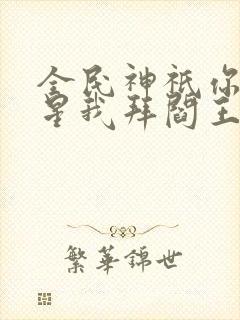 全民神祇你
星我拜阎王
繁華錦世